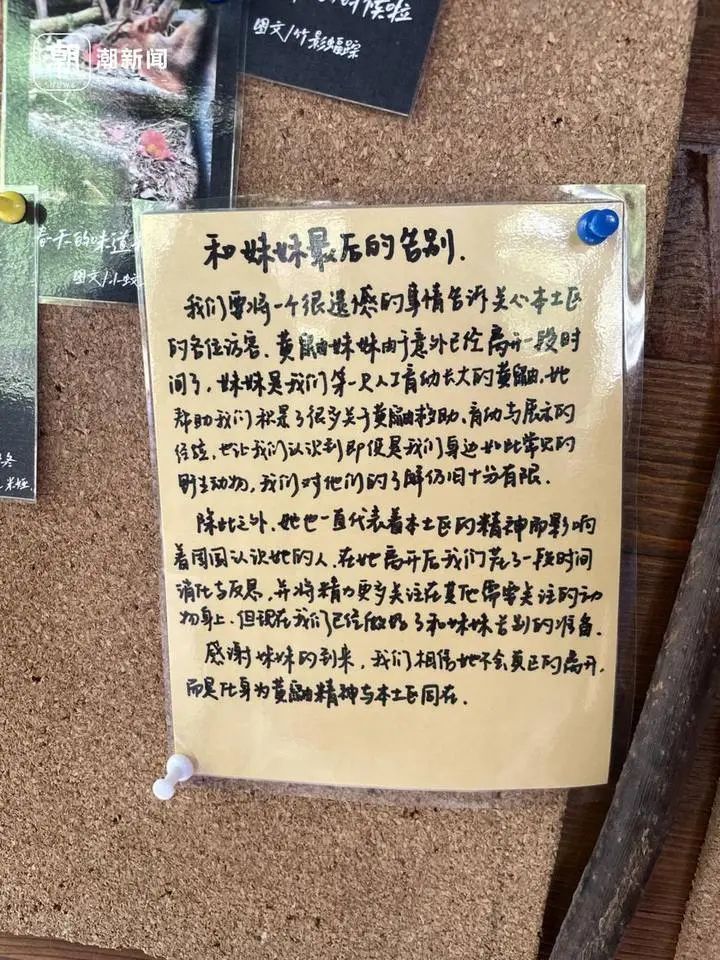 潮
潮新闻
图文/竹影蝠踪
春天的味道
图文/小蛟
和妹妹最后的告别.
我们要将一个很遗憾的事情告诉关心本土区
的各位访客. 黄鼬妹妹由于意外已经离开一段时
间了. 妹妹是我们第一只人工育幼长大的黄鼬. 她
帮助我们积累了很多关于黄鼬救助、育幼与展示的
经验. 也让我们认识到即便是我们身边如此常见的
野生动物, 我们对他们的了解仍旧十分有限.
除此之外. 她也一直代表着本土区的精神而影响
着周围认识她的人. 在她离开后我们花了一段时间
消化与反思, 并将精力更多关注在其他需要关注的动
物身上. 但现在我们已经做好了和妹妹告别的准备.
感谢妹妹的到来, 我们相信她不会真正的离开.
而是化身为黄鼬精神与本土区同在.